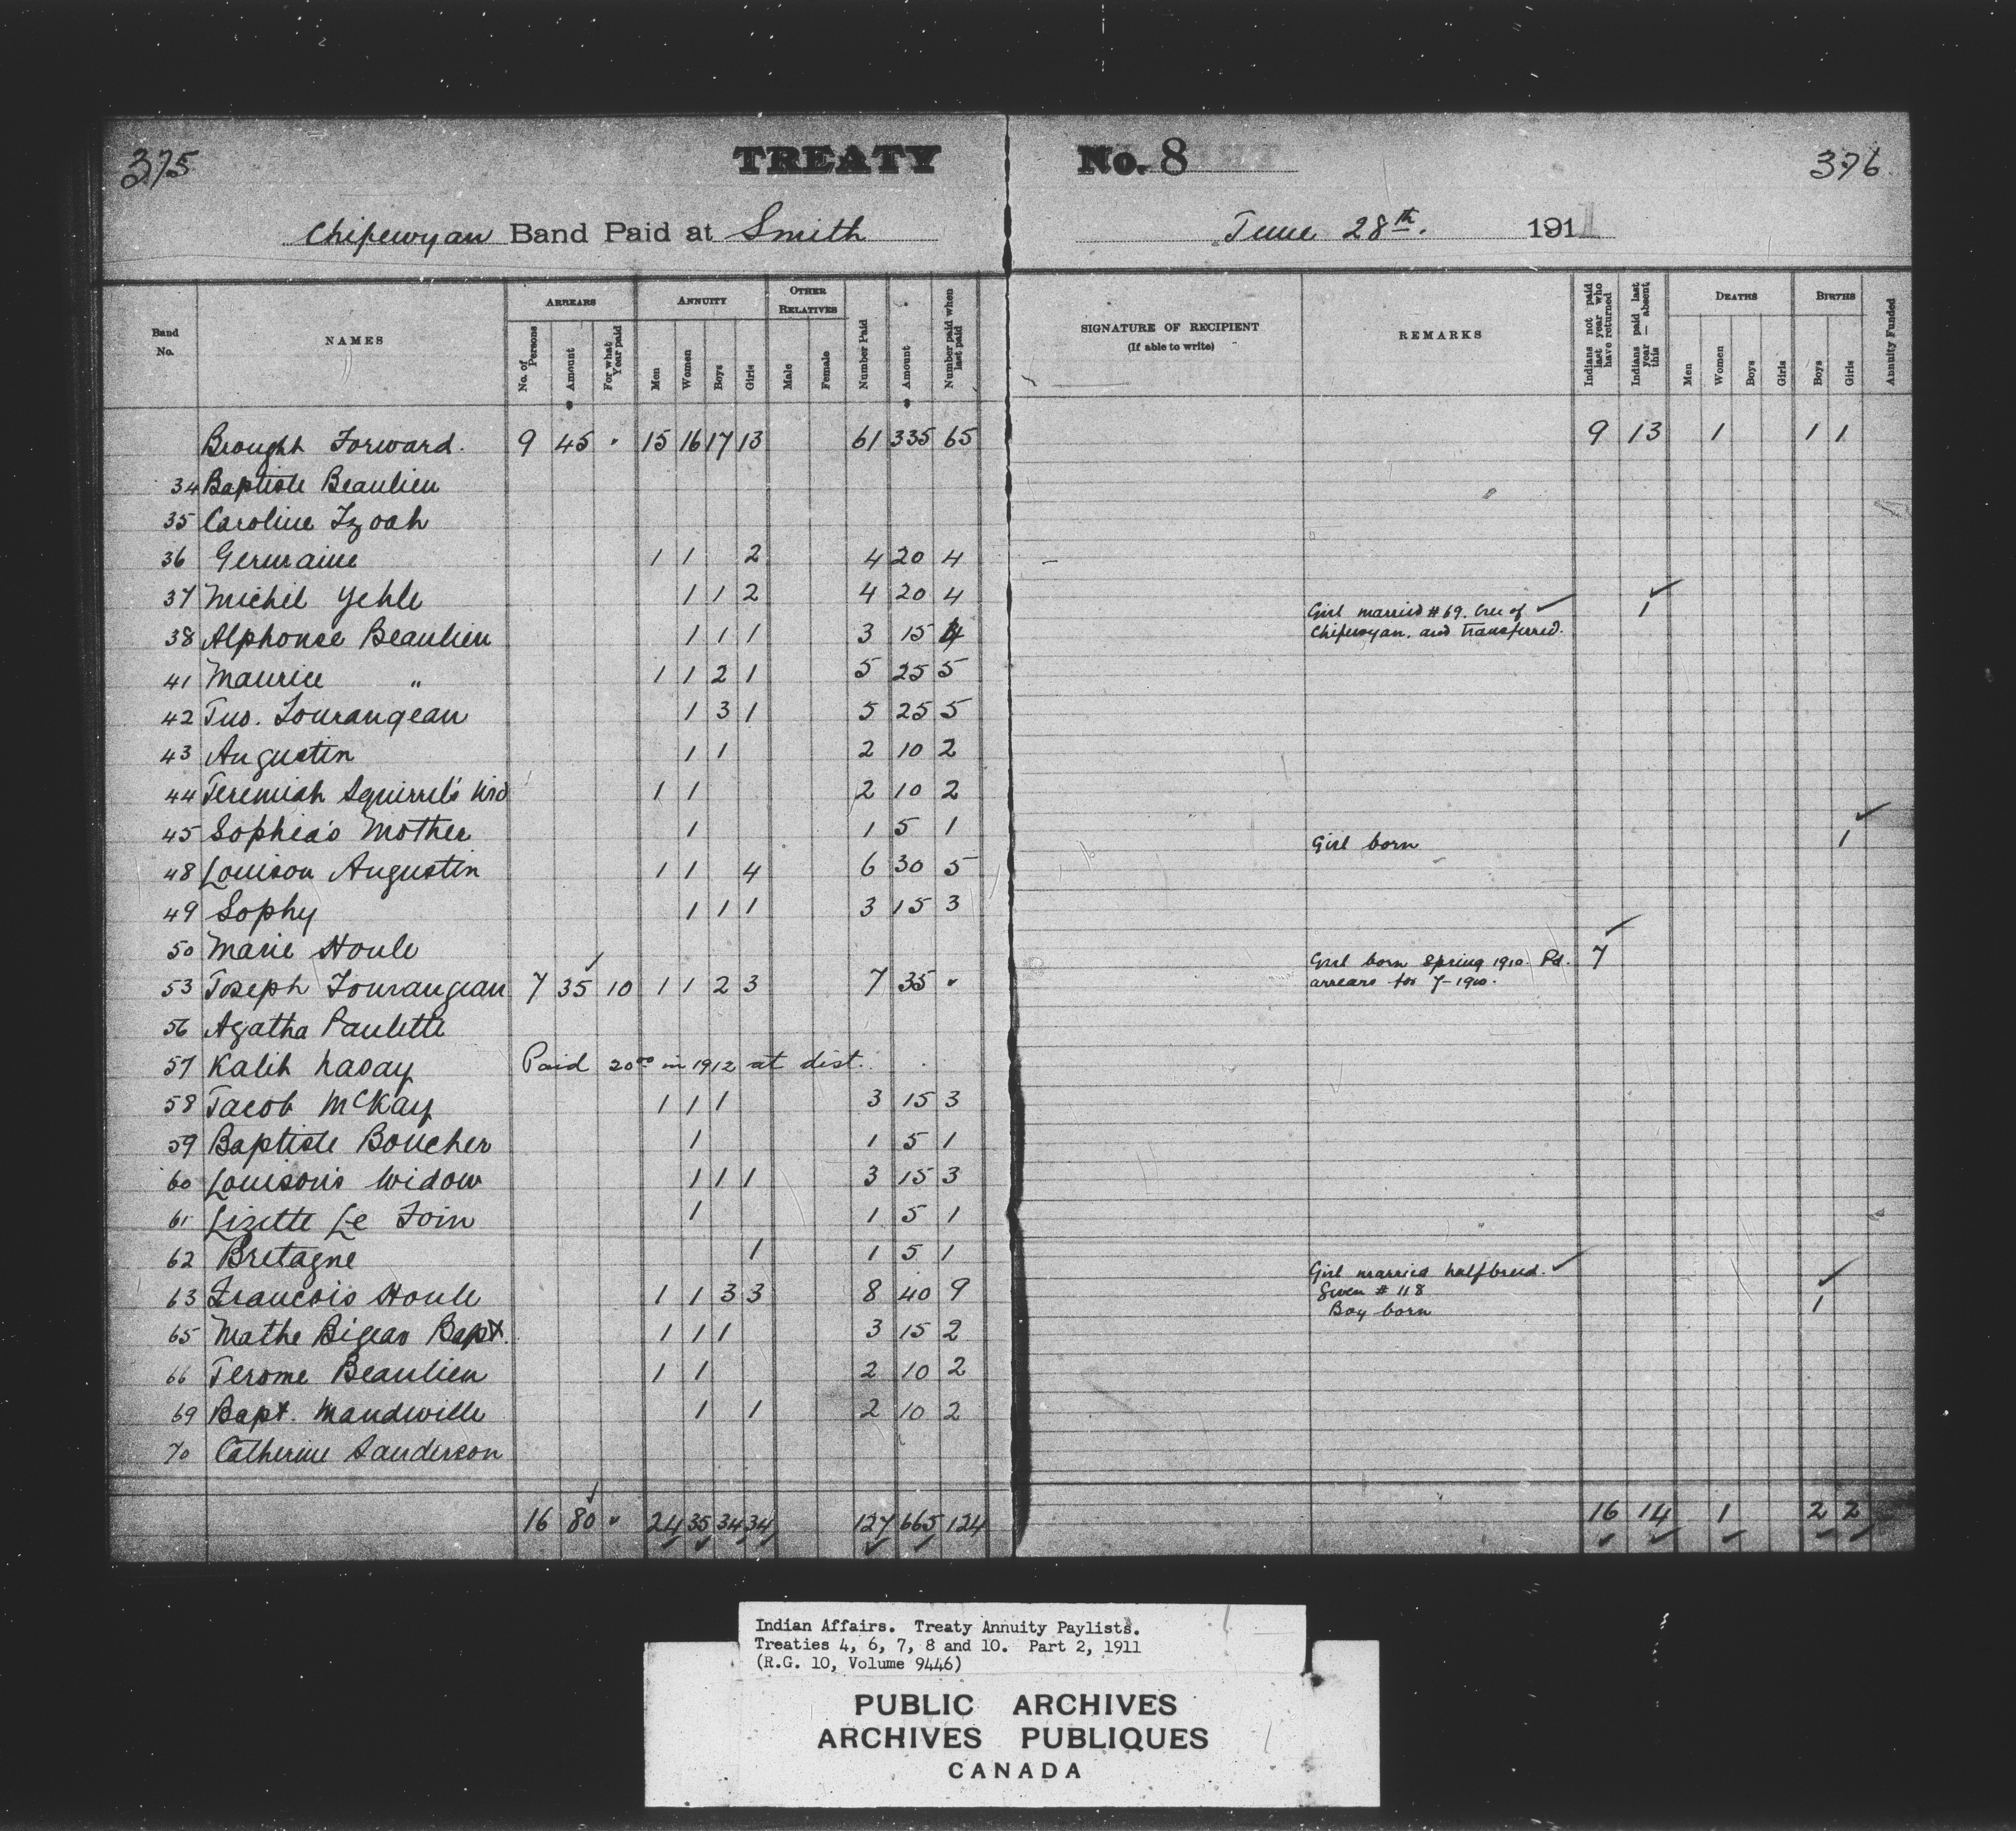 375 TREATY No. 8 376
Chipewyan Band Paid at Smith June 28th. 1911
Band No. NAMES ARREARS ANNUITY OTHER RELATIVES Number Paid Amount Number paid when last paid SIGNATURE OF RECIPIENT (If able to write) REMARKS Indians not paid last year who have returned Indians paid last year — absent this DEATHS BIRTHS Annuity Funded
No. of Persons Amount For what Year paid Men Women Boys Girls Male Female Men Women Boys Girls Boys Girls
Brought Forward. 9 45 " 15 16 17 13 61 335 65 9 13 1 1 1
34 Baptiste Beaulieu
35 Caroline Izoah
36 Germaine 1 1 2 4 20 4
37 Michel Yehle 1 1 2 4 20 4
Girl married #69. Cree of ✓ 1 ✓
38 Alphonse Beaulieu 1 1 1 3 15 4
Chipewyan. and transferred.
41 Maurice " 1 1 2 1 5 25 5
42 Jno. Tourangeau 1 3 1 5 25 5
43 Augustin 1 1 2 10 2
44 Jeremiah Squirrel's Wid 1 1 2 10 2
45 Sophia's Mother 1 1 5 1
Girl born 1 ✓
48 Louison Augustin 1 1 4 6 30 5
49 Sophy 1 1 1 3 15 3
50 Marie Houle
Girl born Spring 1910. Pd. 7 ✓
53 Joseph Tourangeau 7 35 ✓ 10 1 1 2 3 7 35 "
arrears for 7-1910.
56 Agatha Paulette
57 Kalih Nasay Paid 20.00 in 1912 at dist.
58 Jacob McKay 1 1 1 3 15 3
59 Baptiste Boucher 1 1 5 1
60 Louison's Widow 1 1 1 3 15 3
61 Lizette Le Join 1 1 5 1
62 Bretagne 1 1 5 1
Girl married halfbreed. ✓
63 Francois Houle 1 1 3 3 8 40 9
Given #118
Boy born 1 ✓
65 Mathe Bigeas Bapt. 1 1 1 3 15 2
66 Jerome Beaulieu 1 1 2 10 2
69 Bapt. Mandeville 1 1 2 10 2
70 Catherine Sanderson
16 80 ✓ " 24 35 34 34 127 665 124 16 14 1 2 2
Indian Affairs. Treaty Annuity Paylists.
Treaties 4, 6, 7, 8 and 10. Part 2, 1911
(R.G. 10, Volume 9446)
PUBLIC ARCHIVES
ARCHIVES PUBLIQUES
CANADA